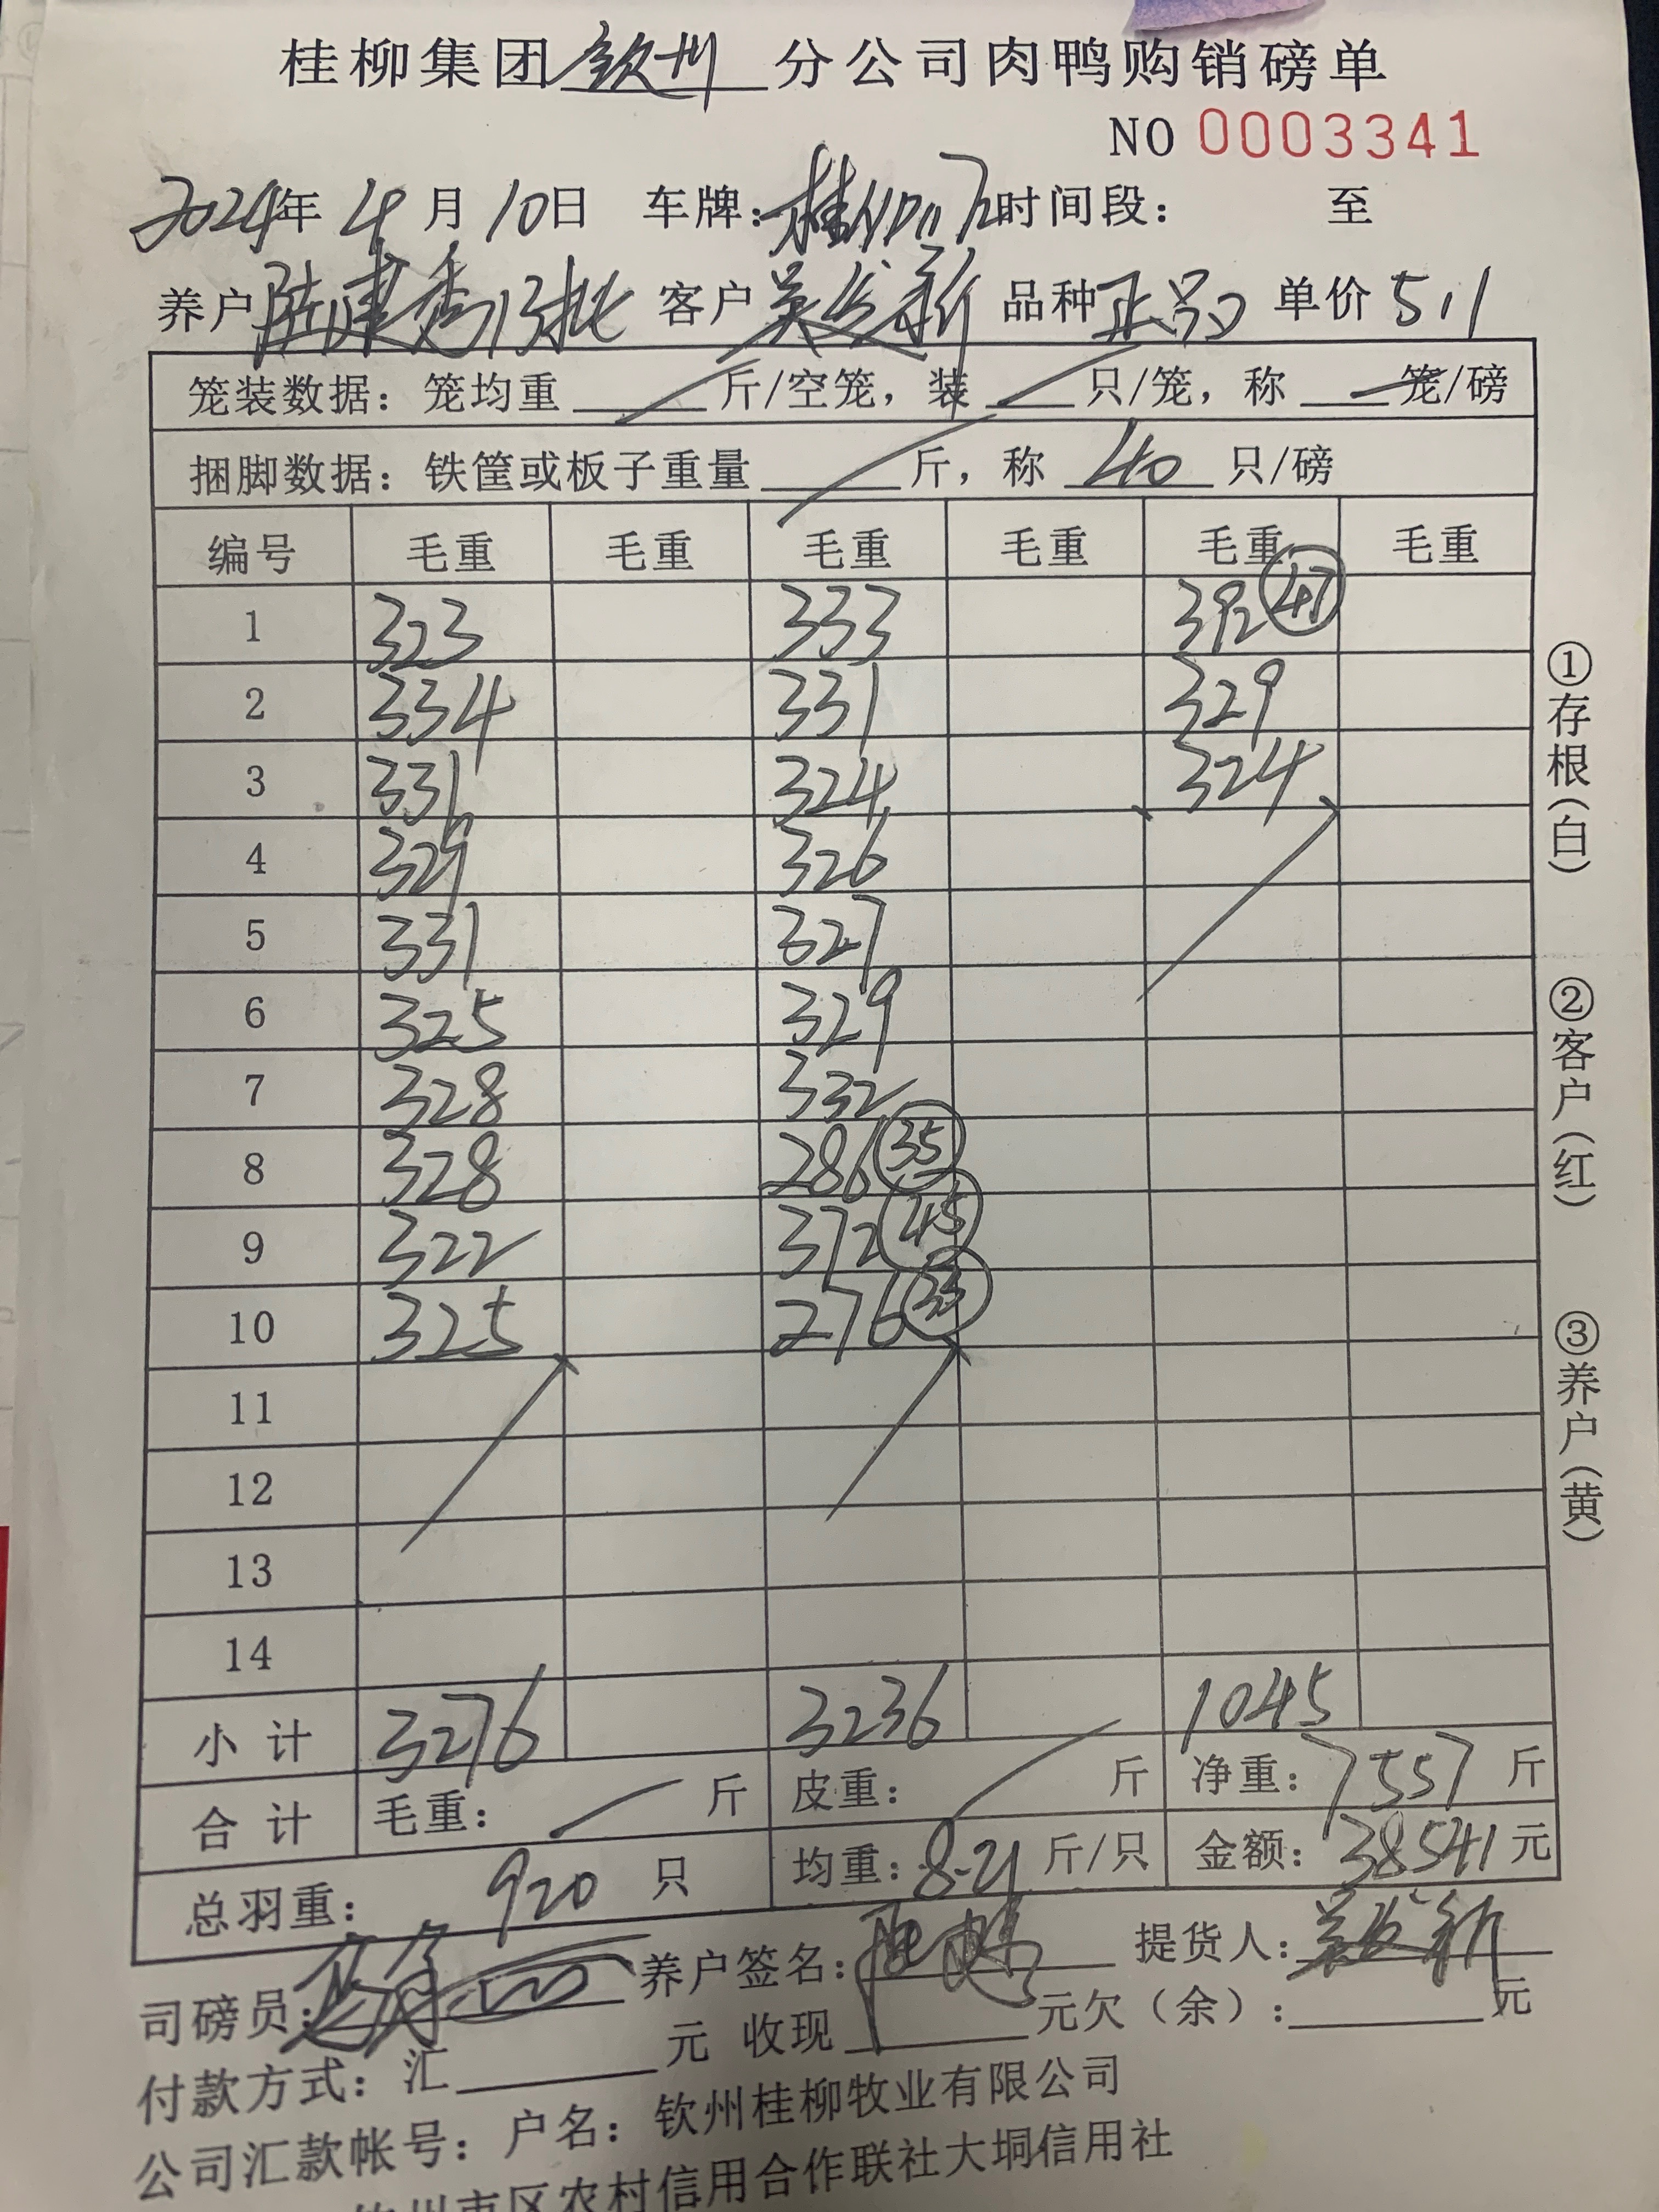 桂柳集团钦州分公司肉鸭购销磅单
NO 0003341
2024年 4月 10日 车牌:桂 时间段: 至
养户 陆建秀13批 客户 吴发新 品种 正品 单价 5.1
笼装数据:笼均重 斤/空笼,装 只/笼,称 笼/磅
捆脚数据:铁筐或板子重量 斤,称 40 只/磅
编号 毛重 毛重 毛重 毛重 毛重 毛重
1 323 333 392 47
2 334 331 329
3 331 324 324
4 329 326
5 331 327
6 325 329
7 328 332
8 328 286 35
9 322 372 45
10 325 276 33
11
12
13
14
小计 3276 3236 1045
合计 毛重: 斤 皮重: 斤 净重:7557 斤
总羽重: 920 只 均重:8.21 斤/只 金额:38541 元
司磅员: 养户签名: 提货人:吴发新
付款方式:汇 元 收现 元欠(余): 元
公司汇款帐号:户名:钦州桂柳牧业有限公司
钦州市区农村信用合作联社大垌信用社
①存根(白)
②客户(红)
③养户(黄)